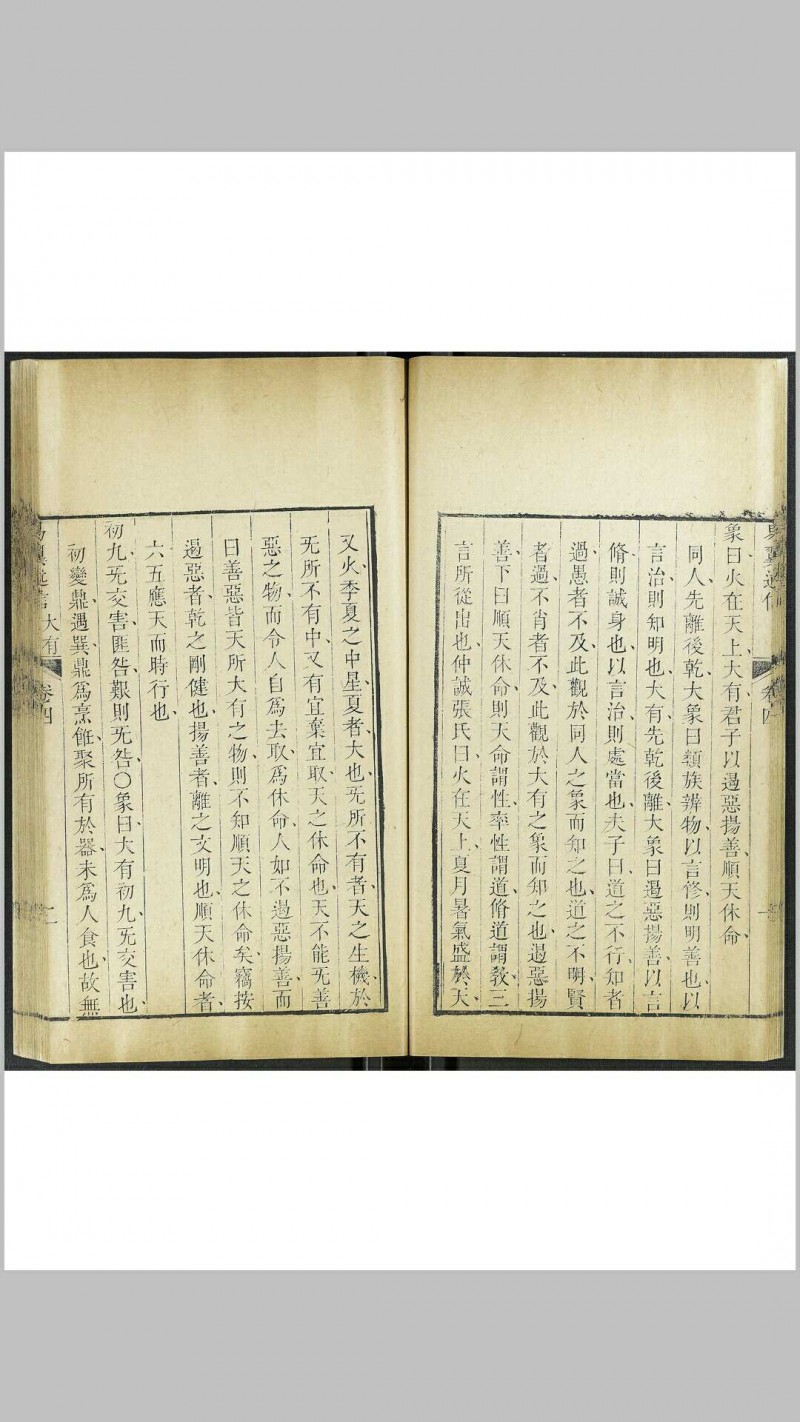 象曰火在天上大有君子以遏惡揚善順天休命
同人先離後乾大象曰類族辨物以言修則明善也以
言治則知明也大有先乾後離大象曰遏惡揚善以言
脩則誠身也以言治則處當也夫子曰道之不行知者
過愚者不及此觀於同人之象而知之也道之不明賢
者過不肖者不及此觀於大有之象而知之也遏惡揚
善下曰順天休命則天命謂性率性謂道脩道謂教三
言所從出也仲誠張氏曰火在天上夏月暑氣盛於天
又火季夏之中星夏者大也旡所不有者天之生機於
旡所不有中又有宜棄宜取天之休命也天不能旡善
惡之物而令人自為去取為休命人如不遏惡揚善而
曰善惡皆天所大有之物則不知順天之休命矣竊按
遏惡者乾之剛健也揚善者離之文明也順天休命者
六五應天而時行也
初九旡交害匪咎艱則旡咎○象曰大有初九旡交害也
初變鼎遇巽鼎為烹飪聚所有於器未為人食也故無
大有
卷四
卷四